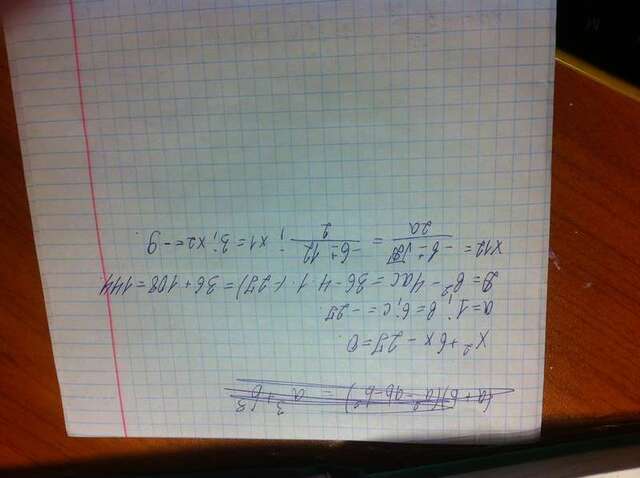 (a+b)(a²-ab-b²) = a³+b³
x²+6x-27=0
a=1; b=6; c=-27
D=b²-4ac=36-4·1·(-27)=36+108=144
x12= -b±√D / 2a = -6±12 / 2; x1=3; x2=-9.